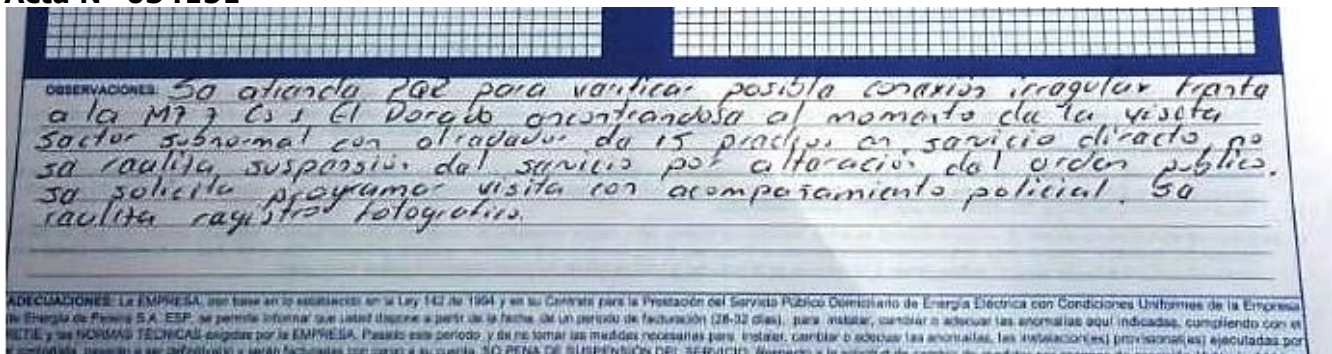 OBSERVACIONES: Se atiende PQR para verificar posible conexión irregular frente
a la M7 7 Cs 1 El Dorado encontrandose al momento de la visita
Sector subnormal con alrededor de 15 predios en servicio directo, no
se realiza suspensión del servicio por alteración del orden publico.
se solicita programar visita con acompañamiento policial. Se
realiza registro fotografico.
ADECUACIONES: La EMPRESA, con base en lo establecido en la Ley 142 de 1994 y en su Contrato para la Prestación del Servicio Público Domiciliario de Energía Eléctrica con Condiciones Uniformes de la Empresa
de Energía de Pereira S.A. ESP. se permite informar que usted dispone a partir de la fecha, de un periodo de facturación (28-32 días), para instalar, cambiar o adecuar las anomalías aquí indicadas, cumpliendo con el
RETIE y las NORMAS TÉCNICAS exigidas por la EMPRESA. Pasado este periodo y de no tomar las medidas necesarias para instalar, cambiar o adecuar las anomalías, las instalacion(es) provisional(es) ejecutadas por
SO PENA DE SUSPENSIÓN DEL SERVICIO.